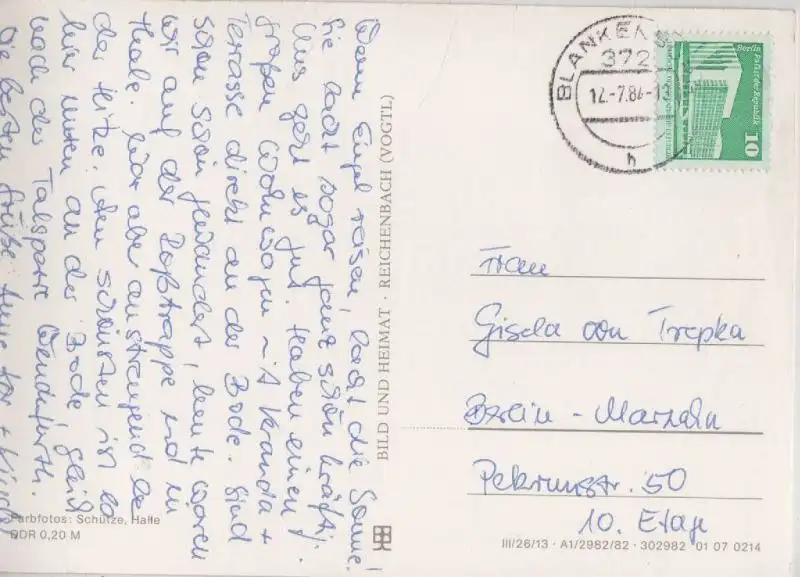 Wenn Engel reisen, lacht die Sonne!
Sie lacht sogar ganz schön kräftig.
Uns geht es gut. Haben einen
großen Wohnwagen mit Veranda +
Terrasse direkt an der Bode. Sind
schon schön gewandert, heute waren
wir auf der Roßtrappe und in
Thale. War aber anstrengend bei
der Hitze. Am schönsten ist es
hier unten an der Bode gleich
nach der Talsperre Wendefurth.
Die besten Grüße
BILD UND HEIMAT · REICHENBACH (VOGTL)
Farbfotos: Schütze, Halle
DDR 0,20 M
BLANKENB
372
12.-7.84-13
h
Berlin Palast der Republik
10
Frau
Gisela von Trepka
Berlin - Marzahn
Pekrunstr. 50
10. Etage
III/26/13 · A1/2982/82 · 302982 01 07 0214